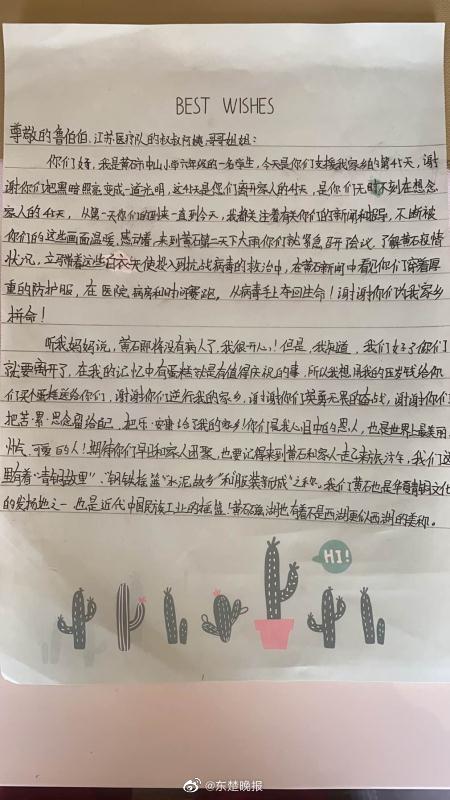 BEST WISHES
尊敬的鲁伯伯、江苏医疗队的叔叔阿姨、哥哥姐姐：
你们好，我是黄石市中山小学六年级的一名学生，今天是你们支援我家乡的第45天，谢
谢你们把黑暗照亮变成一道光明，这45天是您们离开家人的45天，是你们无时不刻在想念
家人的45天，从第一天你们的到来一直到今天，我都关注着有关你们的新闻和报导，不断被
你们的这些画面温暖、感动着，来到黄石第一天下大雨你们就紧急召开会议，了解黄石疫情
状况，立即带着这些白衣天使投入到抗战病毒的救治中，在黄石新闻中看见你们穿着厚
重的防护服，在医院病房和时间赛跑，从病毒手上夺回生命！谢谢你们为我家乡
拼命！
听我妈妈说，黄石即将没有病人了，我很开心！但是，我知道，我们好了你们
就要离开了，在我的记忆中有蛋糕就是有值得庆祝的事，所以我想用我的压岁钱给你
们买个蛋糕送给你们，谢谢你们逆行我的家乡，谢谢你们英勇无畏的奋战，谢谢你们
把苦、累、思念留给自己，把乐、安康给了我的家乡！你们是我心目中的恩人，也是世界上最美丽、
帅气、可爱的人！期待你们早日和家人团聚，也要记得来到黄石和家人一起来旅游，我们这
里有着“青铜故里”、“钢铁摇篮”“水泥故乡”和“服装新城”之称。我们黄石也是华夏青铜文化
的发扬地之一，也是近代中国民族工业的摇篮！黄石磁湖也有着不是西湖更似西湖的美称。
HI!
@东楚晚报